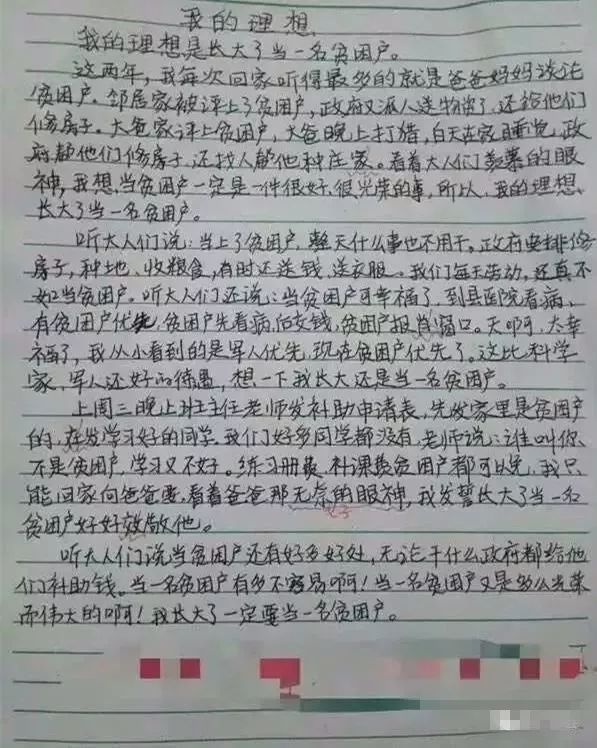 我的理想
我的理想是长大了当一名贫困户。
这两年，我每次回家听得最多的就是爸爸妈妈谈论
贫困户。邻居家被评上了贫困户，政府又派人送物资了，还给他们
修房子。大爸家评上贫困户，大爸晚上打猎，白天在家睡觉，政
府帮他们修房子，还找人帮他种庄家。看着大人们羡慕的眼
神，我想，当贫困户一定是一件很好、很光荣的事，所以，我的理想，
长大了当一名贫困户。
听大人们说：当上了贫困户，整天什么事也不用干。政府安排修
房子，种地、收粮食，有时还送钱、送衣服。我们每天劳动，还真不
如当贫困户。听大人们还说：当贫困户可幸福了，到县医院看病、
有贫困户优先，贫困户先看病，后交钱，贫困户报肖窗口。天啊，太幸
福了，我从小看到的是军人优先，现在贫困户优先了。这比科学
家、军人还好的待遇，想一下我长大还是当一名贫困户。
上周三晚上班主任老师发补助申请表，先发家里是贫困户
的，在发学习好的同学。我们好多同学都没有，老师说：谁叫你
不是贫困户，学习又不好。练习册费、补课费贫困户都可以免，我只
能回家向爸爸要，看着爸爸那无奈的眼神，我发誓长大了当一名
贫困户好好孝敬他。
听大人们说当贫困户还有好多好处，无论干什么政府都给他
们补助钱。当一名贫困户有多不容易啊！当一名贫困户又是多么光荣
而伟大的啊！我长大了一定要当一名贫困户。